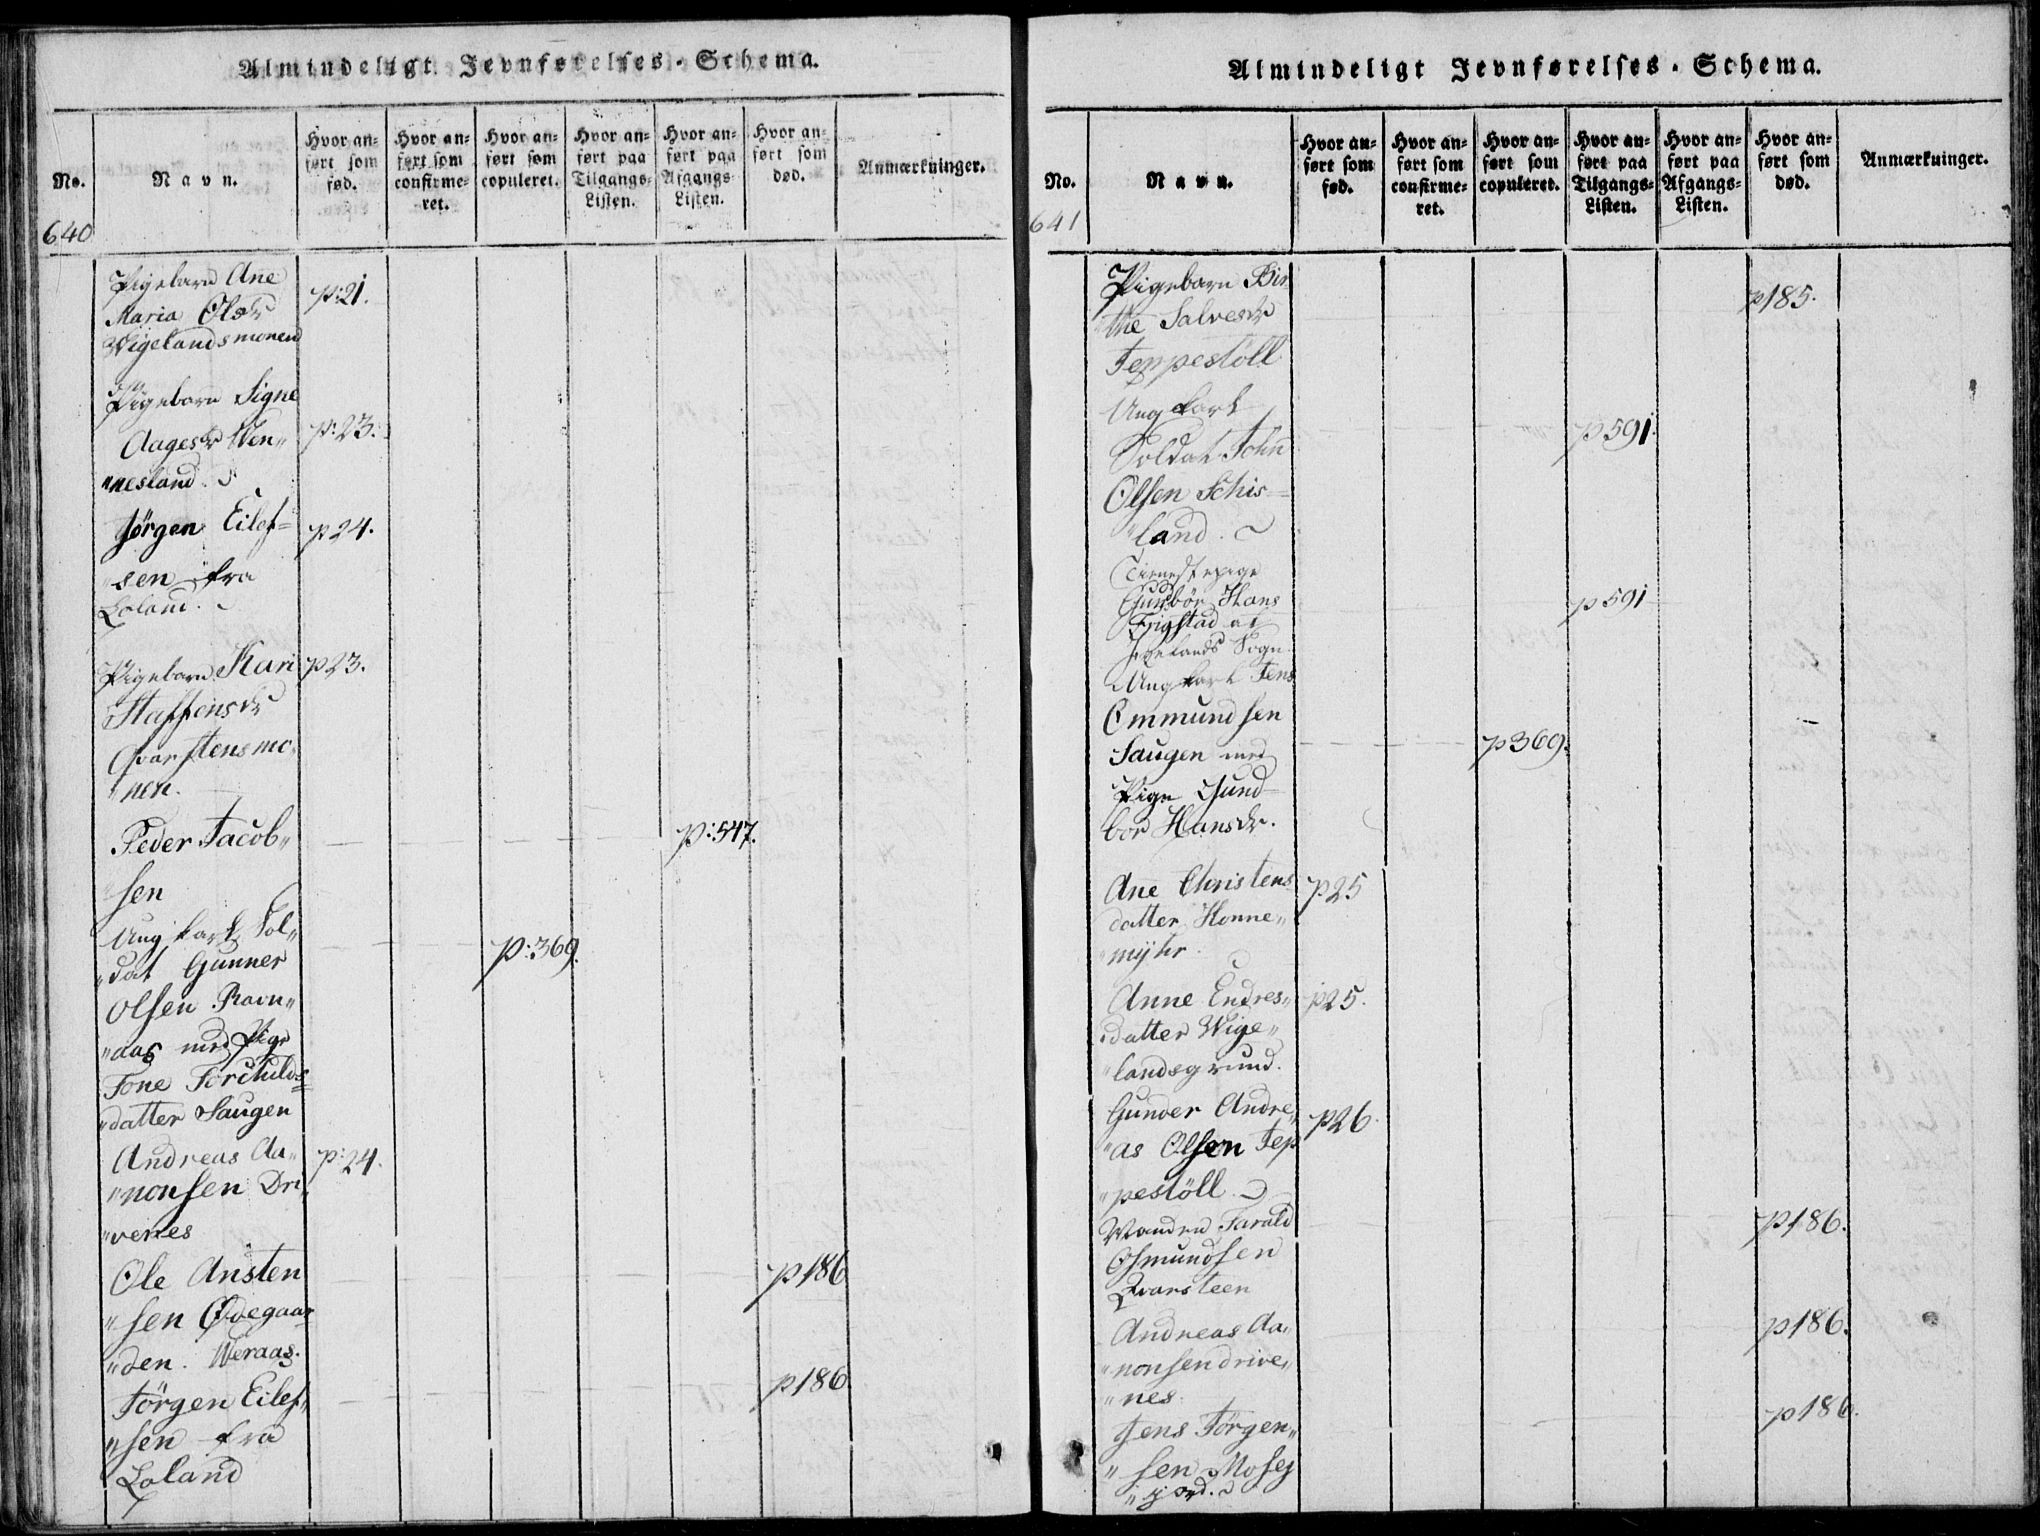 Almindeligt Jevnførelses-Schema.
No.
Navn.
Hvor an-
ført som
fød.
Hvor an-
ført som
confirme-
ret.
Hvor an-
ført som
copuleret.
Hvor an-
ført paa
Tilgangs-
Listen.
Hvor an-
ført paa
Afgangs-
Listen.
Hvor an-
ført som
død.
Anmærkninger.
640
Pigebarn Ane
Maria Olsdr p:21.
Wigelandsmonen
Pigebarn Signe
Aagesdr Wen„ p:23.
„nesland.
Jörgen Eilef= p24.
sen fra
Loland.
Pigebarn Kari p23.
Staffensdr
Qvarstensmo„
„nen.
Peder Jacob„ p:547.
„sen
Ung karl Sol„
„dat Gunner p:369.
Olsen Ravn„
„aas med Pige
Tone Torchilds=
„datter Saugen
Andreas Aa„ p:24.
„nonsen Dri„
„venes
Ole Ansten p186
„sen Ødegaar
„den. Weraas.
Jörgen Eilef„ p186.
„sen fra
Loland
Almindeligt Jevnførelses-Schema.
No.
Navn.
Hvor an-
ført som
fød.
Hvor an-
ført som
confirme-
ret.
Hvor an-
ført som
copuleret.
Hvor an-
ført paa
Tilgangs-
Listen.
Hvor an-
ført paa
Afgangs-
Listen.
Hvor an-
ført som
død.
Anmærkninger.
641
Pigebarn Bir
„the Salvesdr p185.
Teppestöll
Ung karl
Soldat John p591.
Olsen Schis=
„land.
Tienestepige
Gunbör Hans p591
Frigstad af
Sogn.
Ung karl Jens
Ommundsen
Saugen med p369.
Pige Gund=
bor Hansdr.
Ane Christens p25
datter Honne„
„myhr.
Anne Endres„ p25.
„datter Wige„
„landsgrund.
Gunder Andre„ p26.
„as Olsen Tep
„pestöll.
Manden Tarald p186.
Osmundsen
Qvarsteen
Andreas Aa„ p186.
„nonsen drive„
„nes.
Jens Jörgen„ p186.
„sen Mosej
„jord.